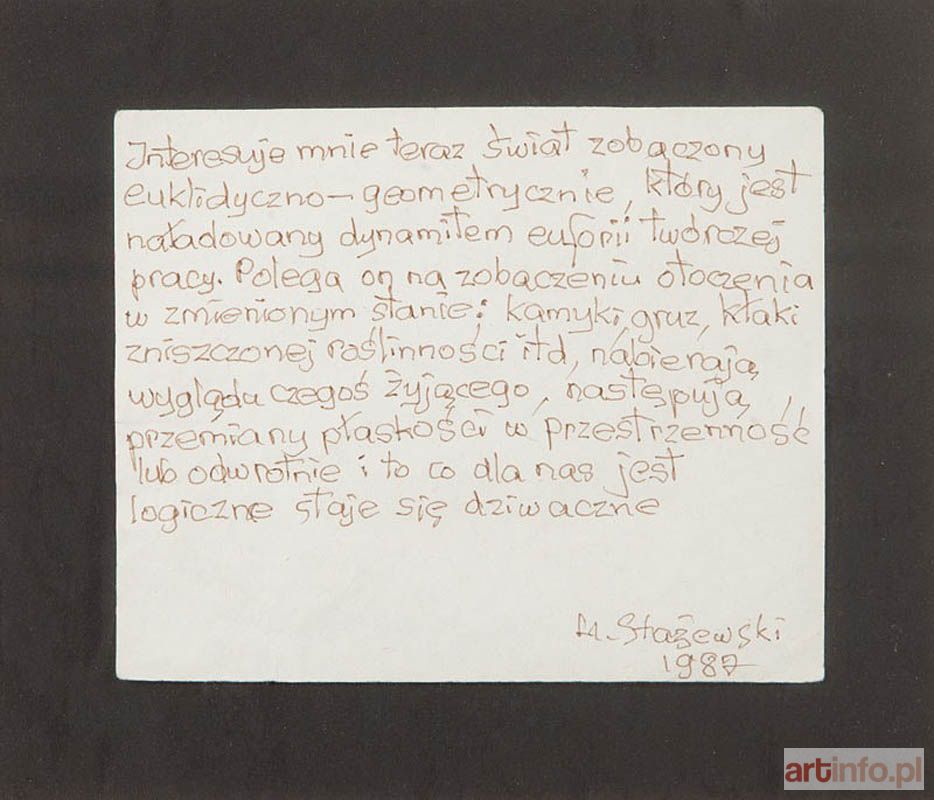 Interesuje mnie teraz świat zobaczony
euklidyczno-geometrycznie, który jest
naładowany dynamitem euforii twórczej
pracy. Polega on na zobaczeniu otoczenia
w zmienionym stanie: kamyki, gruz, kłaki
zniszczonej roślinności itd, nabierają
wyglądu czegoś żyjącego, następują
przemiany płaskości w przestrzenność
lub odwrotnie i to co dla nas jest
logiczne staje się dziwaczne
H. Stażewski
1987
artinfo.pl